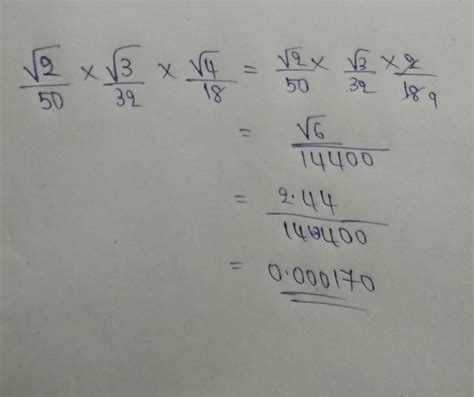 √2/50 × √3/32 × √4/18 = √2/50 × √3/32 × 2/18 9
= √6/14400
= 2.44/14400
= 0.000170